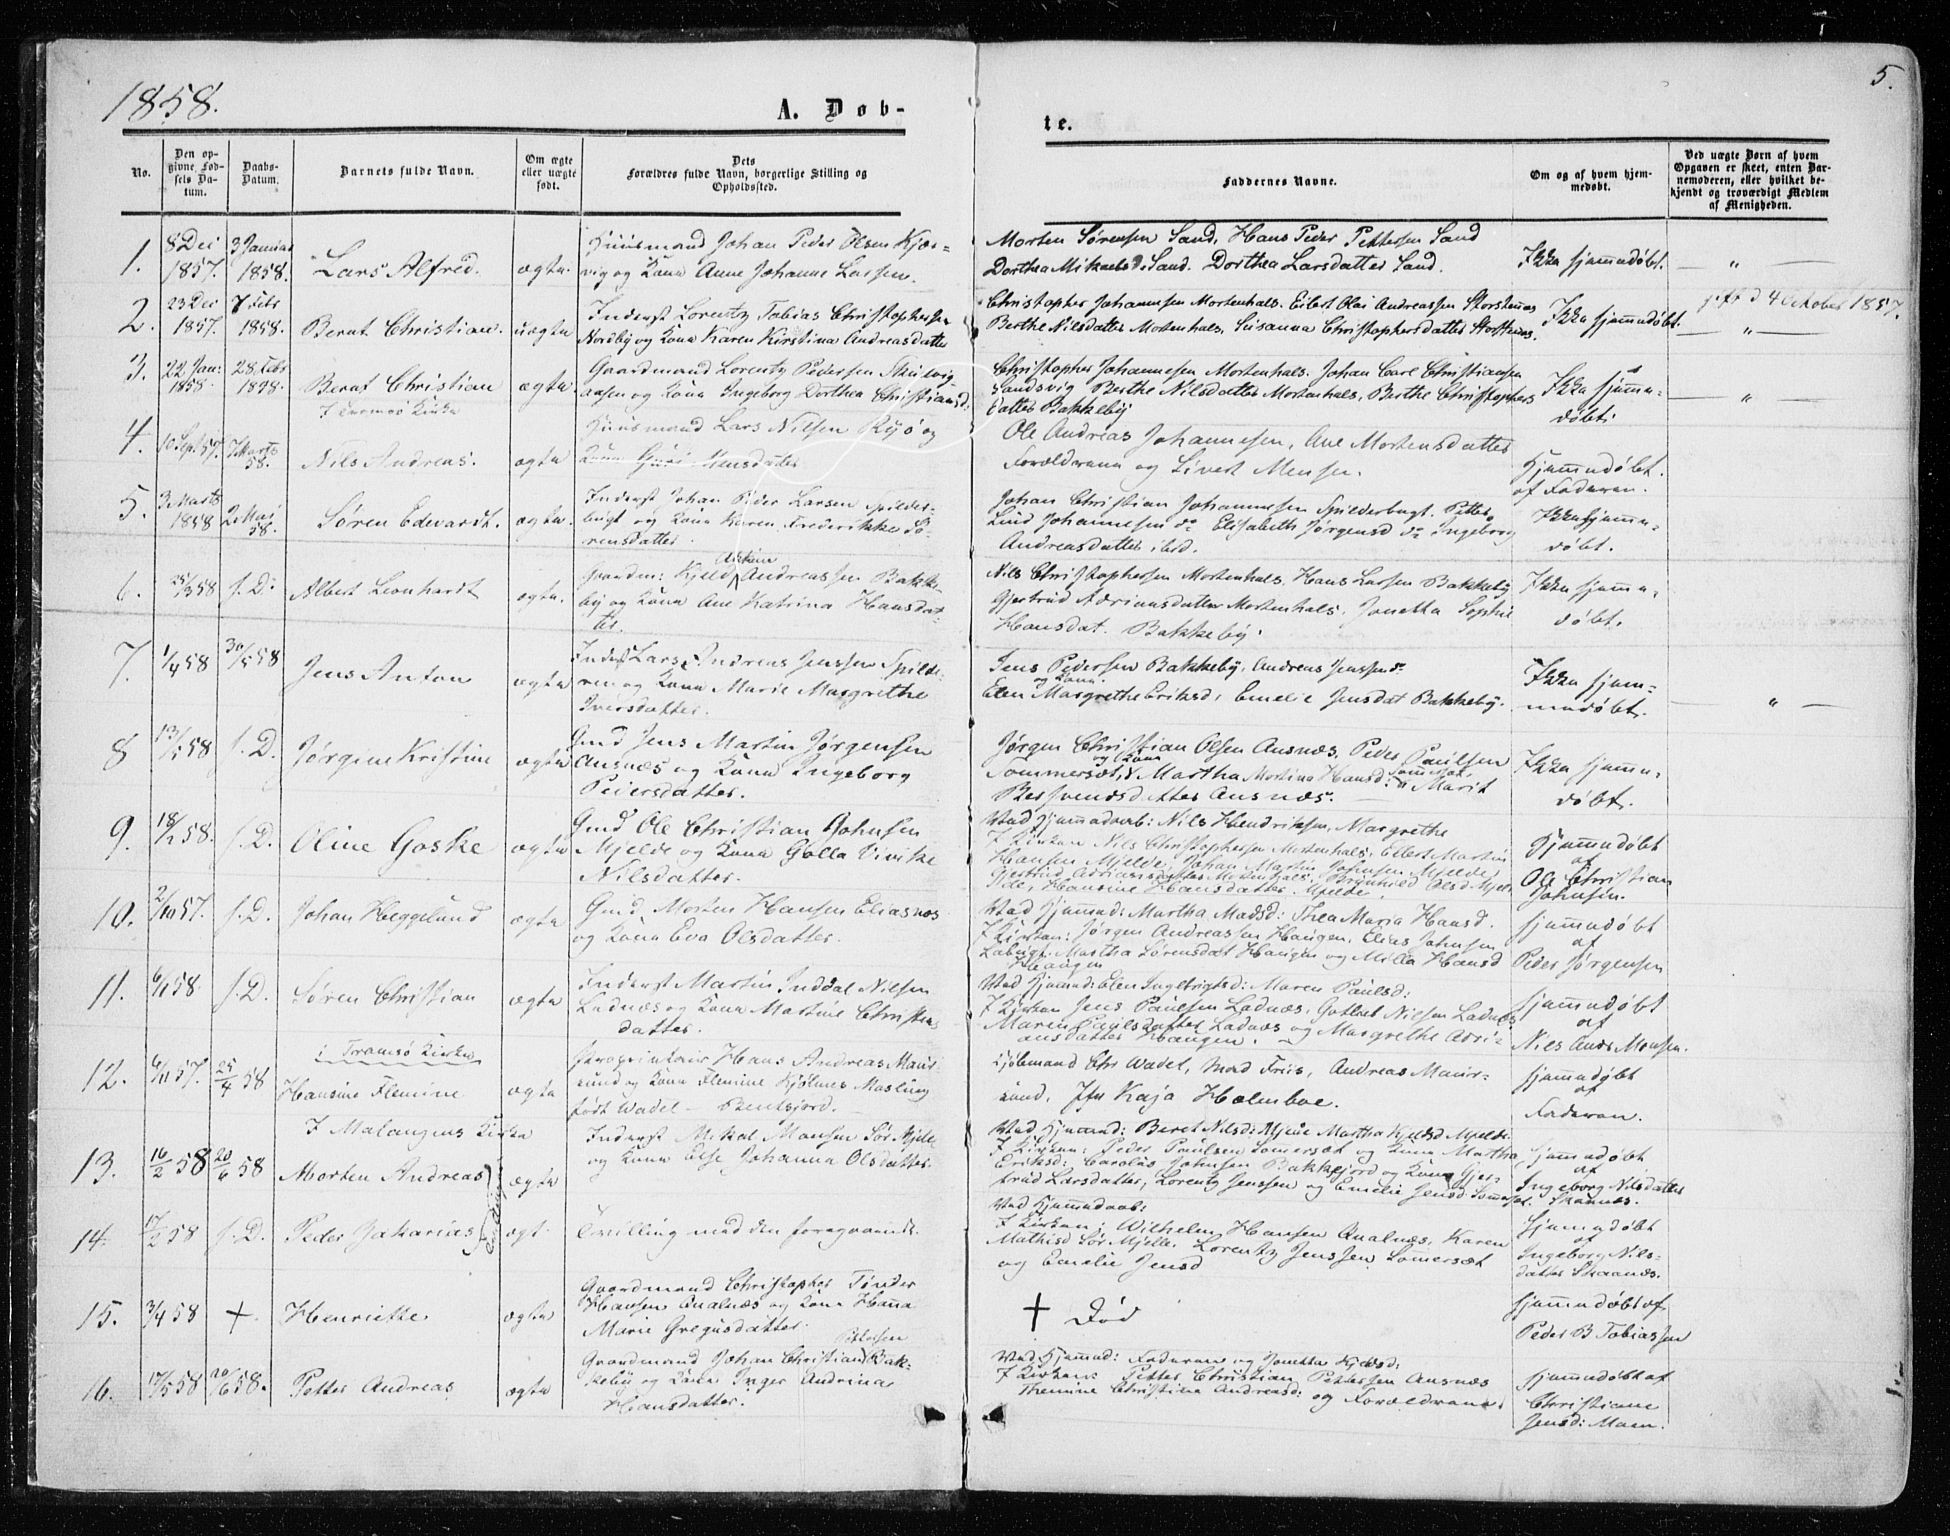 1858.
5.
A. Døb-
te.
No.
Den op-
givne Fød-
sels Da-
tum.
Daabs-
Datum.
Barnets fulde Navn.
Om ægte
eller uægte
født.
Dets
Forældres fulde Navn, borgerlige Stilling og
Opholdssted.
Faddernes Navne.
Om og af hvem hjem-
medøbt.
Ved uægte Børn af hvem
Opgaven er skeet, enten Bar-
nemoderen, eller hvilket be-
kjendt og troværdigt Medlem
af Menigheden.
1. 8 Dec 1857. 3 Januar 1858. Lars Alfred. ægte.
Huusmand Johan Peder Olsen Kjær-
vig og Kone Anne Johanne Larsen.
Morten Sørensen Sand, Hans Peder Pettersen Sand
Dorthea Mikaelsd. Sand. Dorthea Larsdatter Sand.
Ikke hjemmedøbt.
2. 23 Dec 1857. 7 Febr 1858. Bernt Christian. uægte
Inderst Lorentz Tobias Christophersen
Nordby og Kone Karen Kirstina Andreasdatter
Christopher Johannesen Mortenhals. Eilert Olai Andreassen Storstennes
Berthe Nilsdatter Mortenhals. Susanna Christophersdatter Storstennes.
Ikke hjemmedøbt.
gift d 4 October 1857.
3. 22 Jan: 1858. 28 Febr 1858. Bernt Christian ægte
Gaardmand Lorentz Pedersen
og Kone Ingeborg Dorthea Christiansd.
Christopher Johannesen Mortenhals. Johan Carl Christiansen
Sandsvig Berthe Nilsdatter Mortenhals, Berthe Christophers
datter Bakkeby
Ikke hjemme-
døbt.
I Tromsø Kirke
4. 10 Sept. 57. 7 Marts 58. Nils Andreas. ægte
Huusmand Lars Nilsen Ryø og
Kone Guri Monsdatter
Ole Andreas Johannesen, Ane Mortensdatter
Forældrene og Sivert Monsen.
Hjemmedøbt.
af Faderen.
5. 3 Marts 1858 2 Mai 58. Søren Edevardt. ægte.
Inderst Johan Peder Larsen Spilder-
bugt og Kone Karen Frederikke Sø-
rensdatter.
Johan Christian Johannesen Spilderbugt. Petter
Lind Johannesen do Elisabeth Jørgensd do Ingeborg
Andreasdatter ibid.
Ikke hjemme-
døbt.
6. 25/3 58 s. D. Albert Leonhardt ægte.
Gaardm: Kjeld Andreassen Bakke-
by og Kone Ane Katrina Hansdat-
ter.
Nils Christophersen Mortenhals. Hans Larsen Bakkeby
Gjertrud Adriansdatter Mortenhals. Jonetta Sophie
Hansdat. Bakkeby.
Ikke hjemme-
døbt.
7. 1/4 58 30/5 58 Jens Anton ægte
Inderst Lars Andreas Jenssen Spilde-
ren og Kone Marie Margrethe
Iversdatter.
Jens Pedersen Bakkeby. Andreas Jenssen do
og Kone
Elen Margrethe Eriksd, Emelie Jensdat Bakkeby.
Ikke hjem-
medøbt.
8 13/5 58 s. D. Jørgine Kristine ægte
Gmd Jens Martin Jørgensen
Ansnæs og Kone Ingeborg
Pedersdatter.
Jørgen Christian Olsen Ansnæs. Peder Paulsen
Sommersæt, og Kone Martha Mortina Hansd: Sommersæt, Marit
Bersvendsdatter Ansnæs.
Ikke hjemme-
døbt.
9. 18/1 58. s. D. Oline Goske ægte
Gmd Ole Christian Johnsen
Mjelde og Kone Golla Vivike
Nilsdatter.
Ved Hjemmedaab: Nils Hendriksen, Margrethe
I Kirken Nils Christophersen Mortenhals, Ellert Martin
Hansen Mjelde, Johan Martin Johnsen Mjelde
Gjertrud Adriansdatter Mortenhals, Brynhild Olsd Mjel-
de, Hansine Hansdatter Mjelde.
Hjemmedøbt
af
Ole Christian
Johnsen.
10. 2/10 57. s. D. Johan Heggelund ægte
Gmd Morten Hansen Eliasnæs
og Kone Eva Olsdatter.
Ved Hjemmed: Martha Madsd: Thea Maria Hansd.
I Kirken: Jørgen Andreassen Haugen, Elias Johnsen
Labugt, Martha Sørensdat Haugen og Milla Hansd
Haugen
hjemmedøbt
af
Peder Jørgensen
11. 6/1 58. s. D. Søren Christian ægte
Inderst Martin Inddal Nilsen
Ladnæs og Kone Martine Christens-
datter.
Ved Hjemmed: Elen Ingebrigtsd: Maren Paulsd:
I Kirken Jens Paulsen Ladnæs, Gotleb Nielsen Ladnæs
Maren Paulsdatter Ladnæs og Margrethe Adri-
ansdatter Haugen.
hjemmedøbt
af
Nils Ands Monsen.
i Tromsø Kirke
12. 6/11 57. 25/4 58 Hansine Flemine ægte
Proprietair Hans Andreas Maur-
sund og Kone Flemine Kjølmes Masling
født Wadel - Bentsjord.
Kjøbmand Chr Wadel, Mad Friis, Andreas Maur-
sund, Jfr Kaja Holmboe.
hjemmedøbt
af
Faderen.
I Malangens Kirke
13. 16/2 58 20/6 58 Morten Andreas ægte
Inderst Mikal Monsen Sør Mjele
og Kone Else Johanna Olsdatter.
Ved Hjemmed: Beret Nilsd: Mjele Martha Kjeldsd Mjelde.
I Kirken: Peder Paulsen Somersæt og Kone Martha
Eriksd: Carolus Johnsen Bakkejord og Kone Gjer-
trud Larsdatter, Lorentz Jenssen og Emelie Jensd: Somersæt.
hjemmedøbt
af
Ingeborg Nilsdatter
Skaanæs.
14. 17/2 58 s. D. Peder Zakarias ægt.
Tvilling med den foregaaende.
Ved Hjemmedaab:
I Kirken; Wilhelm Hansen Qualnæs, Karen
Mathisd Sør Mjelle. Lorentz Jenssen Somersæt
og Emelie Jensd
hjemmedøbt
af
Ingeborg Nils-
datter Skaanæs.
15. 3/4 58 + Henriette ægte
Gaardmand Christopher Tønder
Hansen Qualnæs og Kone Hanna
Marie Gregusdatter.
+ Død
hjemmedøbt af
Peder B Tobiassen
16. 17/5 58 20/6 58. Petter Andreas ægte
Gaardmand Johan Christian Pettersen Bak-
keby og Kone Inger Andrina
Hansdatter.
Ved Hjemmed: Faderen og Jonetta Kjeldsd:
I Kirken: Petter Christian Pettersen Ansnæs
Themine Christina Andreasd: og Forældrene.
hjemmedøbt af
Christiane
Jensd: Moen.